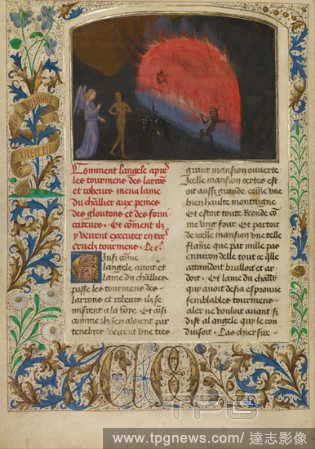 Comment langele apres
les tourmens des larrons
et robeurs mena lame
du chlier aux peines
des gloutons et des forni
cateurs. Et cōment ilz
y veirent executer en tres
cruelz tourmens.
Ainsi cōme
langele auoit et
lame du chlier
passe les tourmens des
larrons et robeurs ilz se
mirent a la voye. Et ainsi
comme ilz en aloient par
tenebres veirent vne tres
grant mansion ouuerte
Icelle mansion certes est
oit aussi grande cōme vne
bien haulte montaigne
et estoit toute reonde cō
me vng four. Et partout
de celle mansion vne telle
flame que par mille pas
enuiron delle tout ce qlle
attaindoit brulloit et ardo
it. Et lame du chlier
qui auoit desia esprouue
semblables tourmens
aler ne vouloit auant si
dist al angele qui le con
duisoit. Las chier sire
TPG
www.tpgnews.com/達志影像